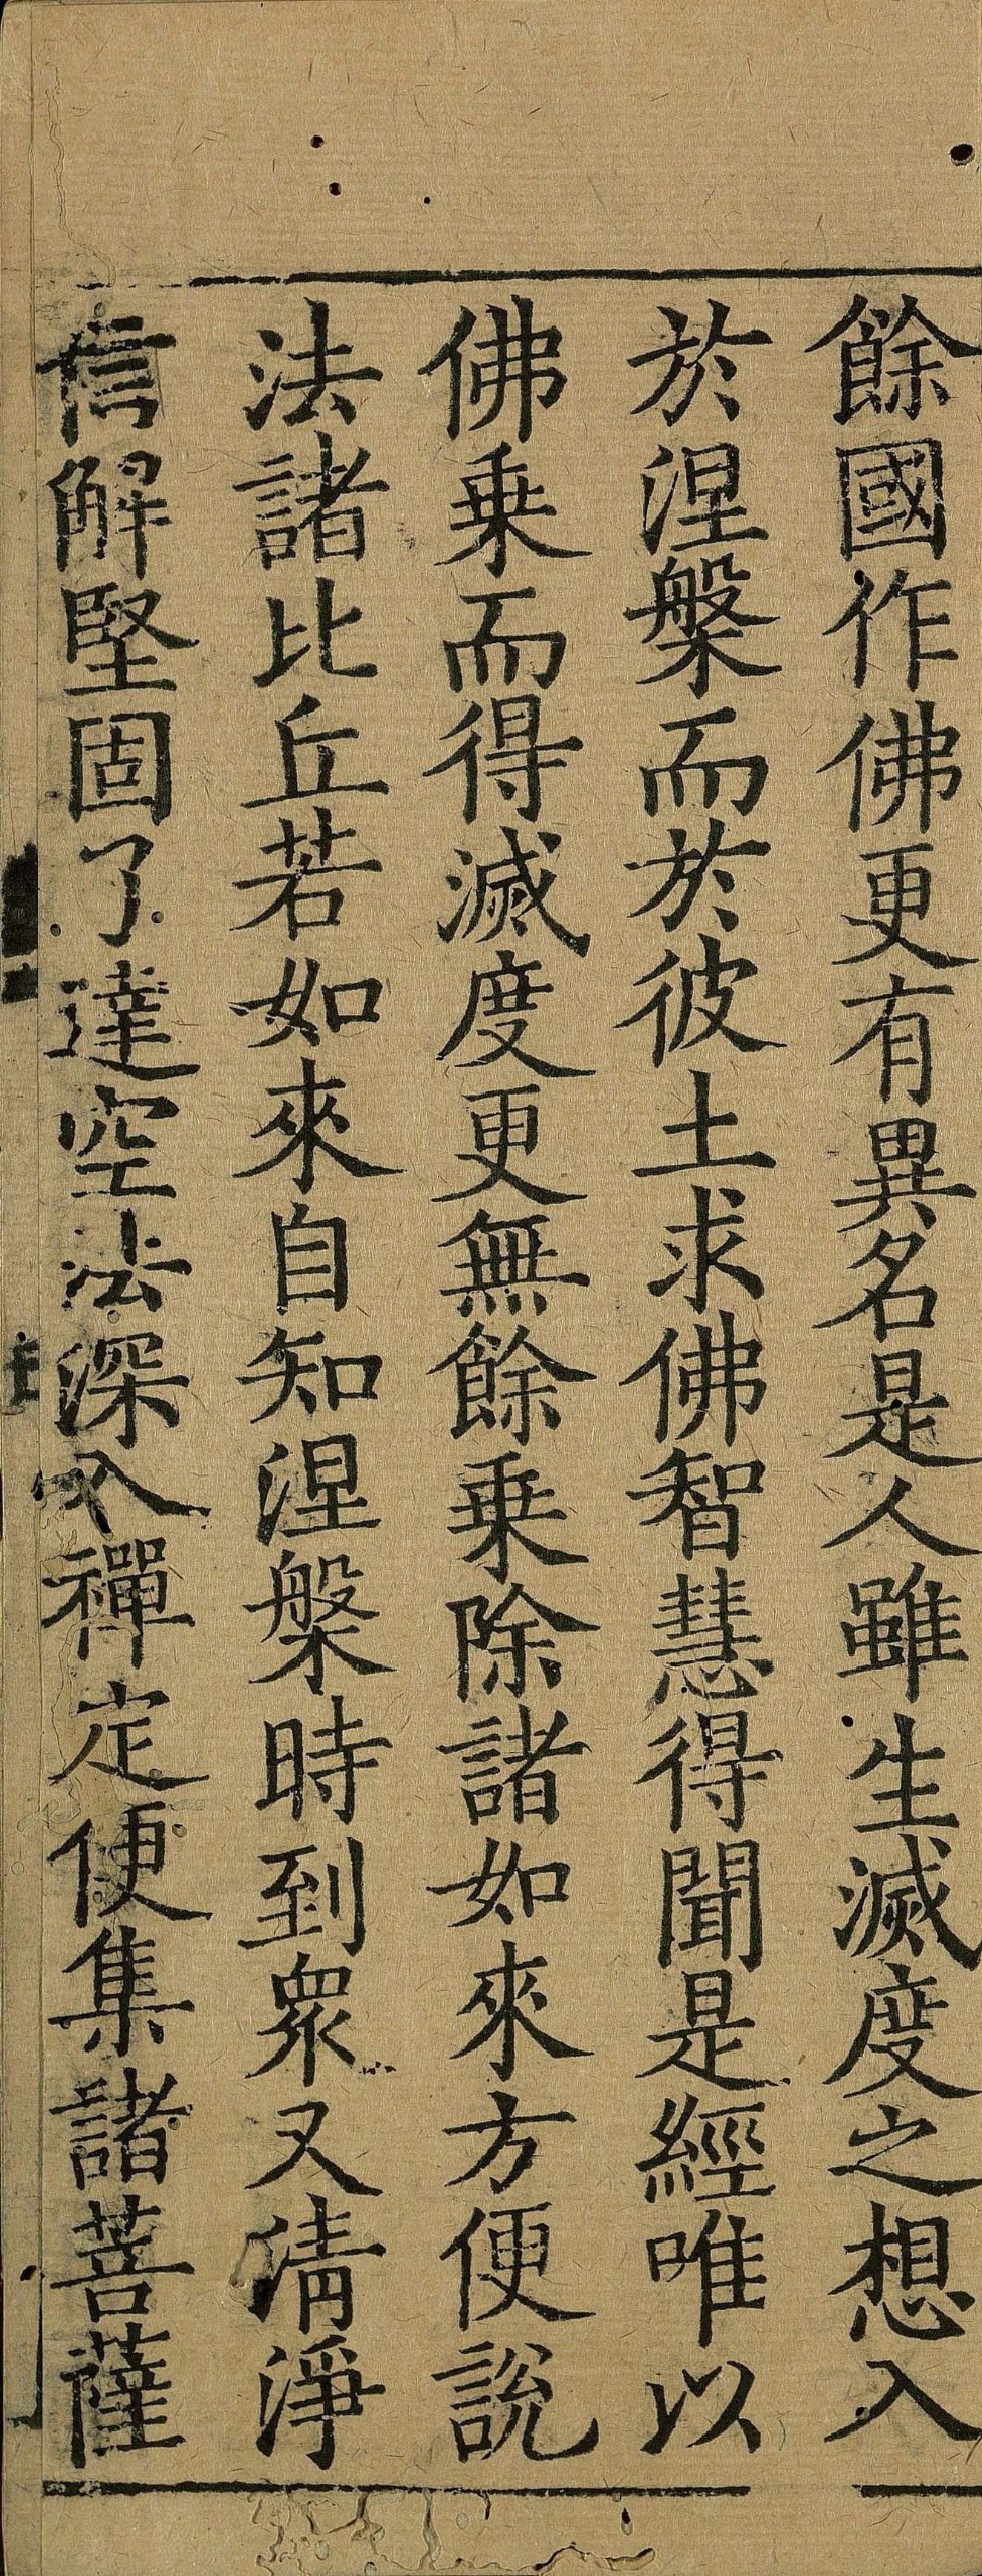 餘國作佛更有異名是人雖生滅度之想入
於涅槃而於彼土求佛智慧得聞是經唯以
佛乗而得滅度更無餘乗除諸如來方便說
法諸比丘若如來自知涅槃時到衆又清淨
信解堅固了達空法深入禪定便集諸菩薩